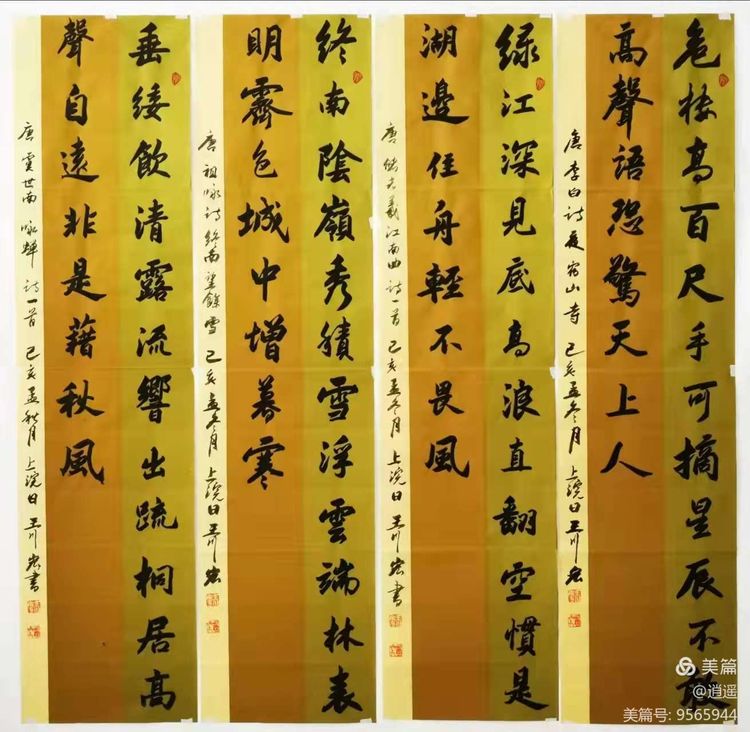 危楼高百尺手可摘星辰不敢
高聲語恐驚天上人
唐 李白詩 夜宿山寺 己亥孟冬月 上浣日 王川宏
绿江深見底高浪直翻空慣是
湖邊住舟輕不畏風
唐 儲光羲江南曲 詩一首 己亥孟冬月 上浣日 王川宏書
终南陰嶺秀積雪浮雲端林表
明霽色城中增暮寒
唐 祖咏詩 终南望餘雪 己亥孟冬月 上浣日 王川宏
垂緌飲清露流響出疏桐居高
聲自遠非是藉秋風
唐 虞世南 咏蟬 詩一首 己亥孟秋月 上浣日 王川宏書
美篇
@逍遥
美篇号: 9565944